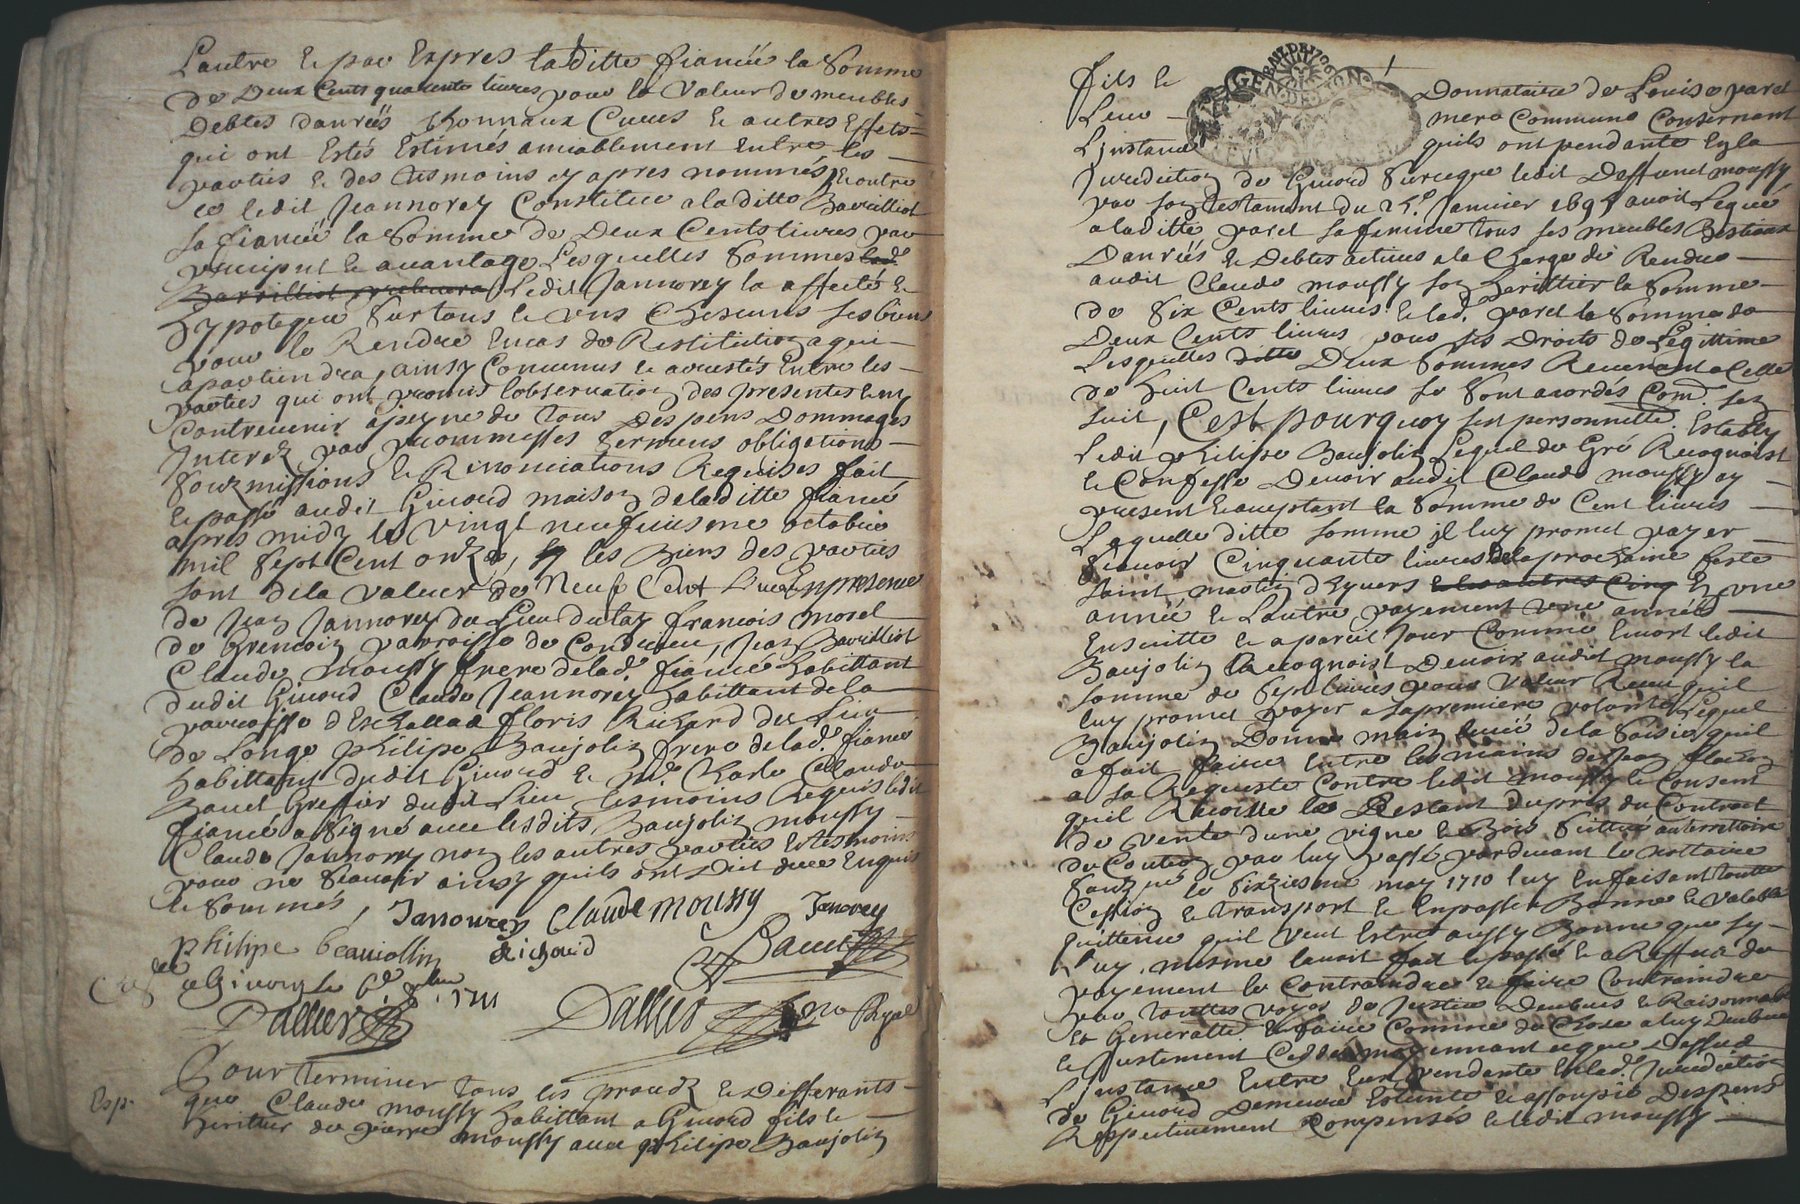 Lautre le par Expres laditte fiancée la Somme
de Deux Cents quarente livres pour la Valeur de meubles
Debtes danrées thonnaux Cuves & autres Effets
qui ont Estés Estimés amiablement Entre les
parties & des tesmoins cy apres nommés, & outre
ce ledit Jeannorey Constitue a laditte Barrilliot
sa fiancée la Somme de Deux Cents livres par
preciput & avantage Lesquelles Sommes lad.
Barrilliot ledit Jannorey la affecté &
hypotequé Sur tous & uns Chescuns ses biens
pour le Rendre En cas de Restitution a qui
apartiendra, ainsy Convenus & arrestés Entre les
parties qui ont promis lobservation des presentes & ny
Contrevenir a peyne de tous Despens Dommages
Interez par promesses Sermens obligations
Soubmissions & Renonciations Requises fait
& passé audit Givord maison de laditte fiancée
apres midy le vingt neufviesme octobre
mil Sept Cent onze, les Biens des parties
sont de la valeur de Neuf Cent Livres En presence
de Jean Jannorey du Lieu du fay francois morel
de Grenoin parroisse de Condrieu, Jean Barrilliot
Claude moussy frere de lad. fiancée habittant
dudit Givord Claude Jeannorey habittant de la
parroisse dEschallad floris Richard du Lieu
de Longe philipe Baujolin frere de lad. fiancée
habittant dudit Givord & Me. Charle Claude
Bauet Greffier dudit Lieu tesmoins Requis ledit
fiancé a Signé avec lesdits Baujolin moussy
Claude Jannorey non les autres parties & tesmoins
pour ne Scavoir ainsy quils ont Dit de ce Enquis
& Sommés,
Janourey Claude moussy Janorey
philipe beaujollin Richard Bauet
a Givord le 6e 9bre 1711
Dallier Dallier no Royal
Pour terminer tous les procedz & Differants
Exp. que Claude moussy habittant a Givord fils &
heritier de pierre moussy avec philipe Baujolin
fils & Donnataire de Louise varel
Leur mere Commune Consernant
Linstance quils ont pendante En la
Jurediction de Givord Surceque ledit Deffunct moussy
par son testament du 25e Janvier 1695 avoit Legué
a laditte varel sa femme tous ses meubles Bestiaux
Danrées & Debtes actives a la Charge de Rendre
audit Claude moussy son heritier la Somme
de Six Cents livres & lad. varel la Somme de
Deux Cents livres pour ses Droits de Legittime
Lesquelles ditte Deux Sommes Revenant a Celle
de huit Cents livres se Sont acordés Com. sen
suit, Cest pourquoy sest personnelle. Estably
ledit philipe Baujolin Lequel de Gré Recognoist
& Confesse Devoir audit Claude moussy cy
present & acceptant la Somme de Cent livres
Laquelle ditte somme il luy promet payer
Scavoir Cinquante livres de la prochaine feste
Saint martin dhyvers & les autres Cinq En une
année & Lautre payement une année
Ensuitte & a pareil Jour Comme Encore ledit
Baujolin Recognoist Devoir audit moussy la
somme de Sept livres pour valeur Receu quil
luy promet payer a sa premiere volonté Lequel
Baujolin Donne main levée de la Saisie quil
a fait faire Entre les mains de Jean
a sa Requeste Contre ledit moussy & Consent
quil Recoive le Restant du prix du Contract
de vente dune vigne & Bois Scittué au territoire
de Couton par luy passé pardevant le nottaire
Soubz.né le Sixziesme may 1710 luy En faisant toutte
Cession & transport & En passer Bonne & valable
quittance quil veut Estre aussy Bonne que sy
Luy mesme lavoit fait & passé & a Reffus de
payement le Contraindre & faire Contraindre
par touttes voyes de Justice Deubues & Raisonnable
& Generalle. & faire Comme de Chose a luy Deubue
& Justement Cedée moyennant ce que Dessus
Linstance Entre Eux pendante En lad. Jurediction
de Givord Demeure Estinte & assoupie Despens
Respectivement Compensés & ledit moussy